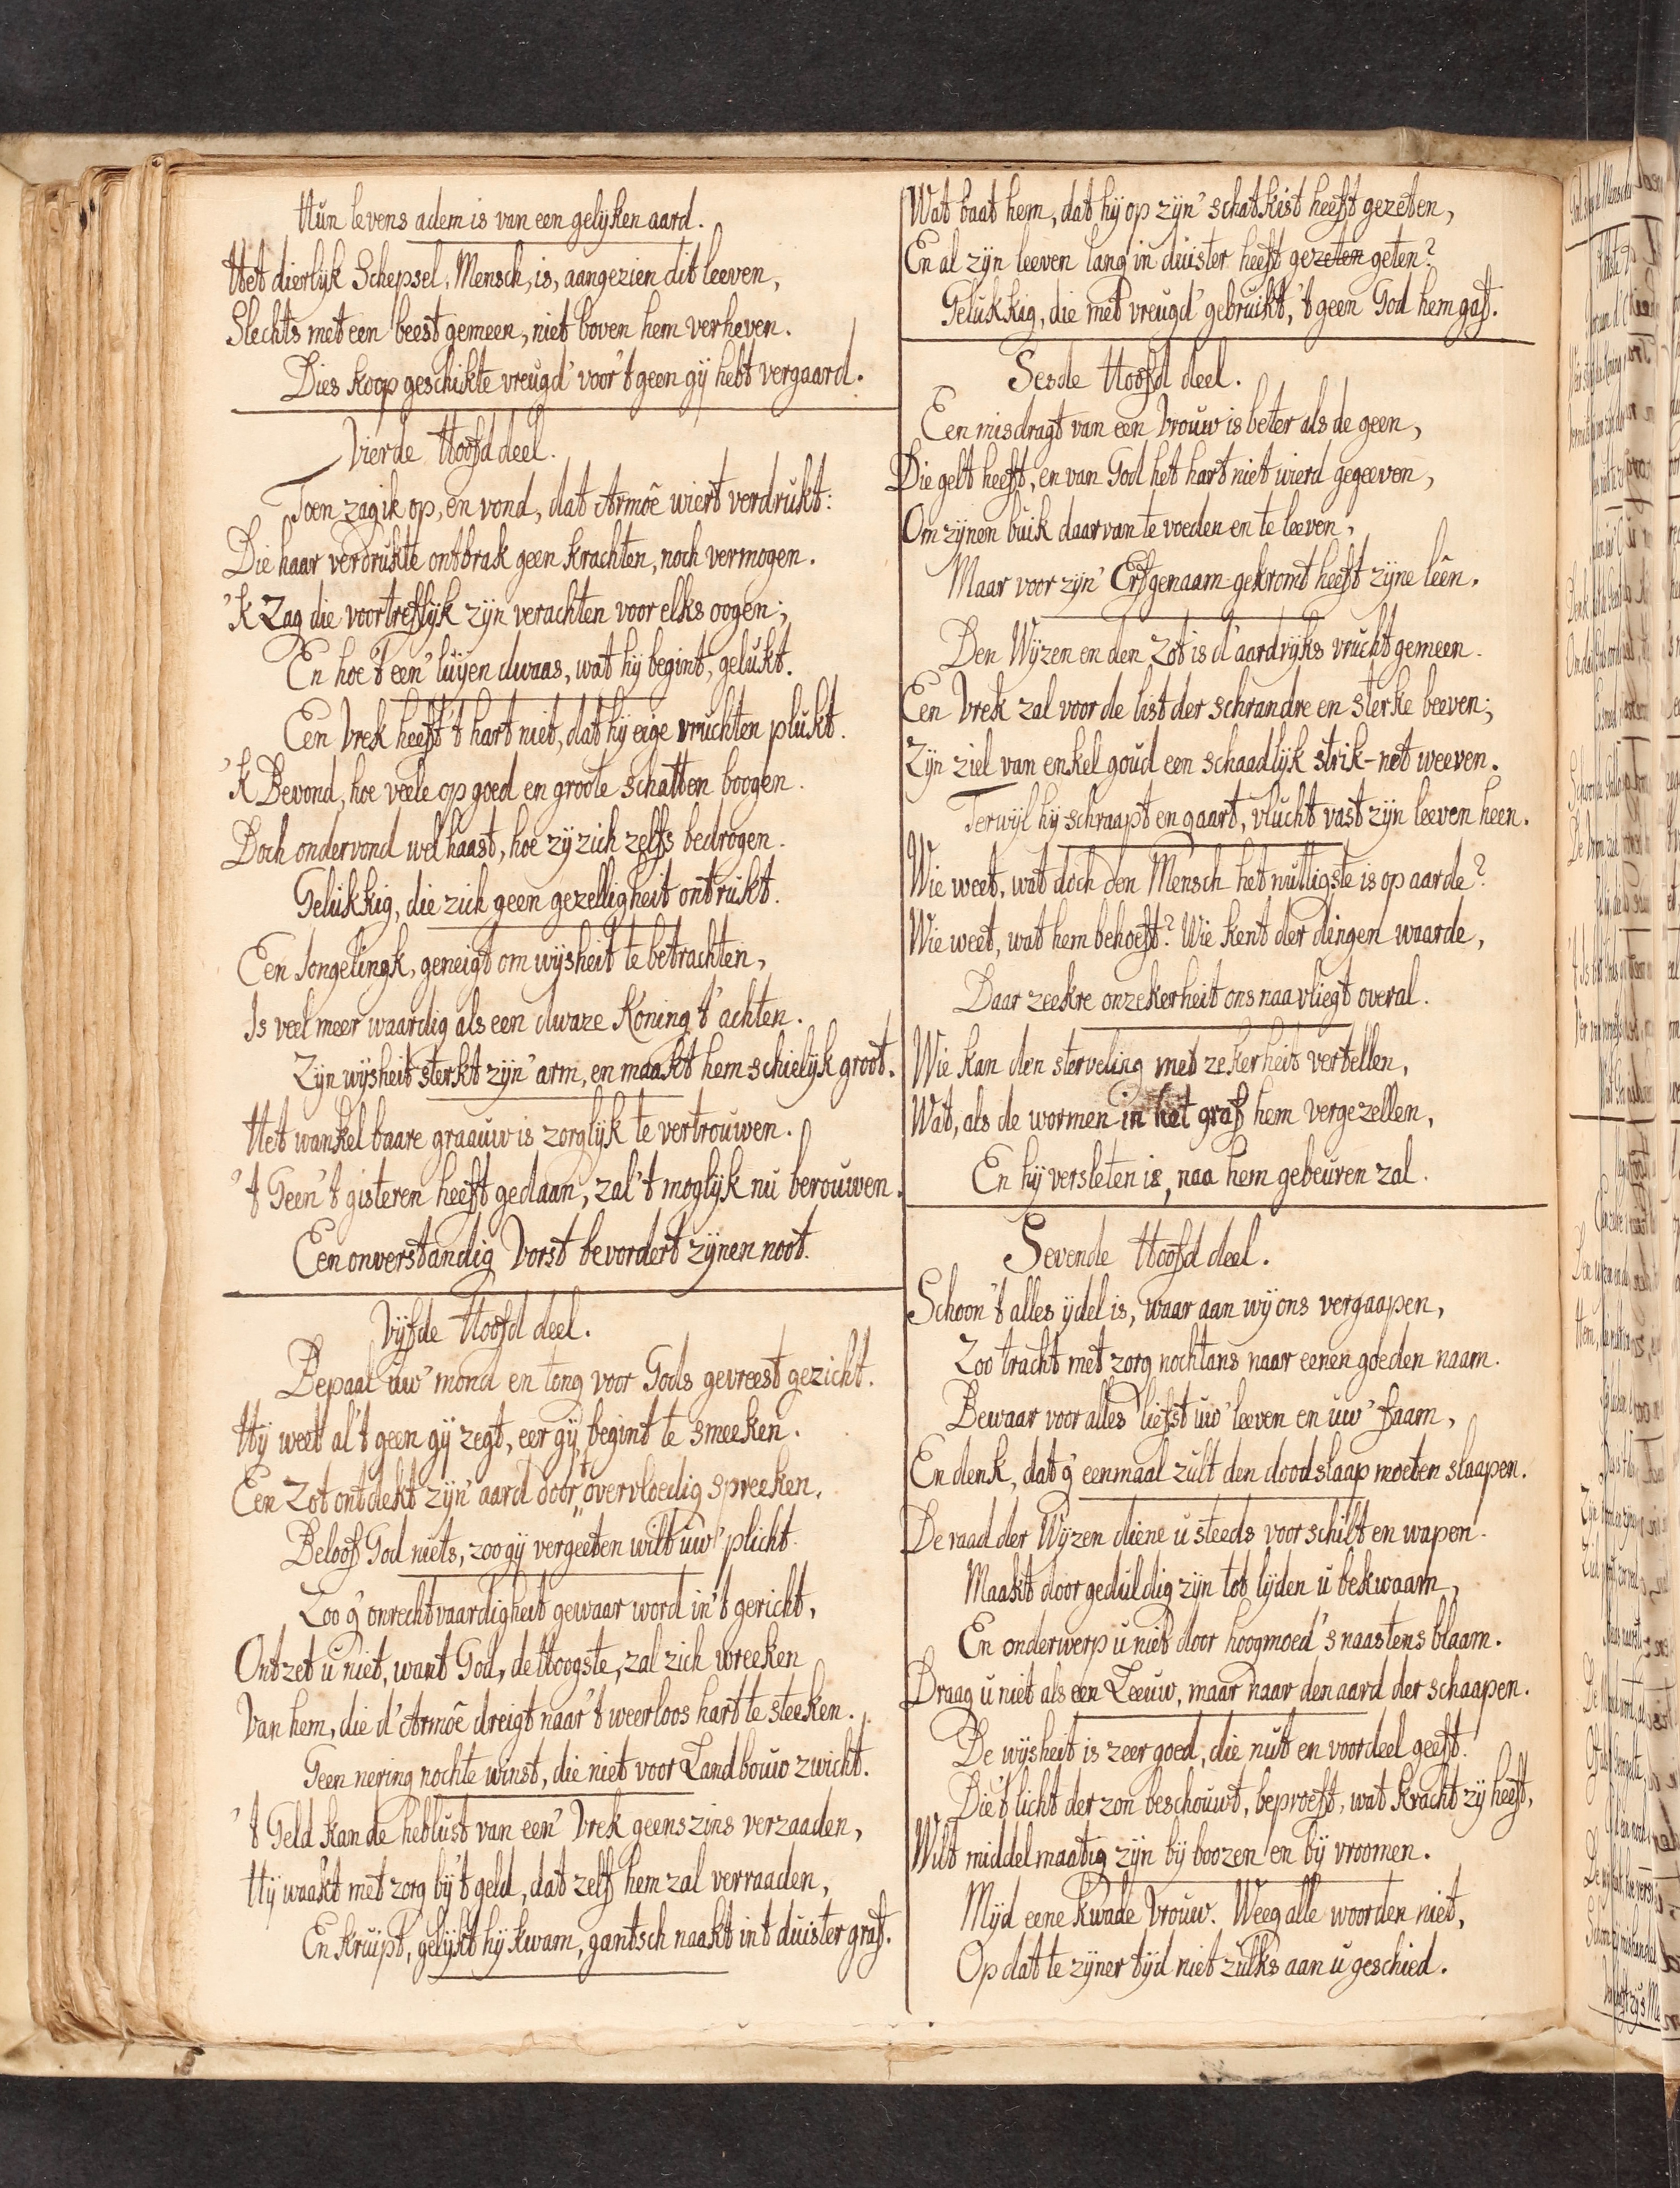 Hun levens adem is van een gelyken aard.
Het dierlyk Schepsel, Mensch, is, aangezien dit leeven,
Slechts met een beest gemeen, niet boven hem verheven.
Dies koop geschikte vreugd' voor 't geen gÿ hebt vergaard.
Vierde Hoofd deel.
Toen zag ik op, en vond, dat Armoê wiert verdrukt:
Die haar verdrukte ontbrak geen krachten, noch vermogen.
'k Zag die voortreflyk zÿn verachten voor elks oogen;
En hoe 't een' luÿen dwaas, wat hÿ begint, gelukt.
Een Vrek heeft 't hart niet, dat hÿ eige vruchten plukt.
'k Bevond, hoe veele op goed en groote schatten boogen.
Doch ondervond wel haast, hoe zÿ zich zelfs bedrogen.
Gelukkig, die zich geen gezelligheit ontrukt.
Een Jongelingk, geneigt om wÿsheit te betrachten,
Is veel meer waardig als een dwaze Koning t' achten.
Zÿn wÿsheit sterkt zÿn' arm, en maakt hem schielÿk groot.
Het wankelbaare graauw is zorglÿk te vertrouwen.
't Geen 't gisteren heeft gedaan, zal 't moglÿk nu berouwen.
Een onverstandig Vorst bevordert zÿnen noot.
Vÿfde Hoofd deel.
Bepaal uw' mond en tong voor Gods gevreest gezicht.
Hÿ weet al 't geen gÿ zegt, eer gÿ begint te smeeken.
Een Zot ontdekt zÿn' aard door 't overvloedig spreeken.
Beloof God niets, zoo gÿ vergeeten wilt uw' plicht.
Zoo g' onrechtvaardigheit gewaar word in 't gericht,
Ontzet u niet, want God, de Hoogste, zal zich wreeken
Van hem, die d' Armoê dreigt naar 't weerloos hart te steeken.
Geen nering nochte winst, die niet voor Landbouw zwicht.
't Geld kan de heblust van een' Vrek geenszins verzaaden,
Hÿ waakt met zorg bÿ 't geld, dat zelf hem zal verraaden,
En kruipt, gelÿkt hÿ kwam, gantsch naakt in t duister graf.
Wat baat hem, dat hÿ op zÿn' schatkist heeft gezeten,
En al zÿn leeven lang in duister heeft gezeten geten?
Gelukkig, die met vreugd' gebruikt, 't geen God hem gaf.
Sesde Hoofd deel.
Een misdragt van een Vrouw is beter als de geen,
Die gelt heeft, en van God het hart niet wierd gegeeven,
Om zÿnen buik daar van te voeden en te leeven,
Maar voor zÿn' Erfgenaam gekromt heeft zÿne lêên.
Den Wÿzen en den Zot is d' aardrÿks vrucht gemeen.
Een Vrek zal voor de list der schrandre en sterke beeven;
Zÿn ziel van enkel goud een schaadlÿk strik-net weeven.
Terwÿl hÿ schraapt en gaart, vlucht vast zÿn leeven heen.
Wie weet, wat doch den Mensch het nuttigste is op aarde?
Wie weet, wat hem behoeft? Wie kent der dingen waarde,
Daar zeekre onzekerheit ons naa vliegt overal.
Wie kan den sterveling met zekerheit vertellen,
Wat, als de wormen in het graf hem vergezellen,
En hÿ versleten is, naa hem gebeuren zal.
Sevende Hoofd deel.
Schoon 't alles ÿdel is, waar aan wÿ ons vergaapen,
Zoo tracht met zorg nochtans naar eenen goeden naam.
Bewaar voor alles liefst uw' leeven en uw' faam,
En denk, dat g' eenmaal zult den doodslaap moeten slaapen.
De raad der Wÿzen diene u steeds voor schilt en wapen.
Maakt door geduldig zÿn tot lÿden u bekwaam,
En onderwerp u niet door hoogmoed 's naastens blaam.
Draag u niet als een Leeuw, maar naar den aard der schaapen.
De wÿsheit is zeer goed, die nut en voordeel geeft.
Die 't licht der zon beschouwt, beproeft, wat kracht zÿ heeft,
Wilt middelmaatig zÿn bÿ boozen en bÿ vroomen.
Mÿd eene kwade Vrouw. Weeg alle woorden niet,
Op dat te zÿner tÿd niet zulks aan u geschied.